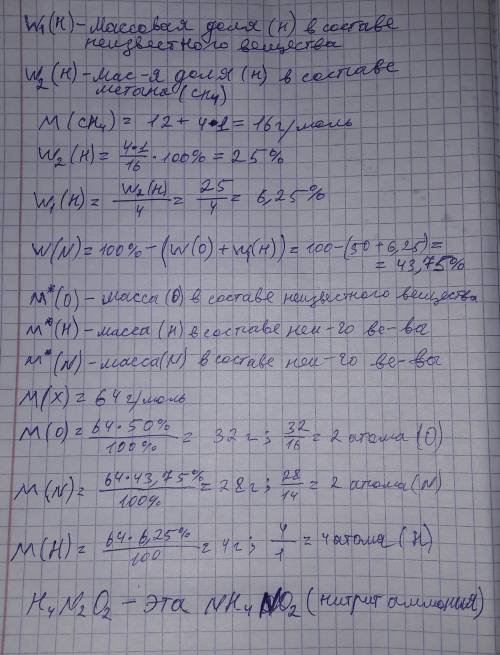 W₁(H) - Массовая доля (H) в составе
неизвестного вещества
W₂(H) - Мас-я доля (H) в составе
метана (CH₄)
M(CH₄) = 12 + 4•1 = 16 г/моль
W₂(H) = 4•1/16 · 100% = 25%
W₁(H) = W₂(H)/4 = 25/4 = 6,25%
W(N) = 100% - (W(O) + W₁(H)) = 100 - (50 + 6,25) =
= 43,75%
M*(O) - масса (O) в составе неизвестного вещества
M*(H) - масса (H) в составе неи-го ве-ва
M*(N) - масса (N) в составе неи-го ве-ва
M(X) = 64 г/моль
M(O) = 64•50%/100% = 32 г; 32/16 = 2 атома (O)
M(N) = 64•43,75%/100% = 28 г; 28/14 = 2 атома (N)
M(H) = 64•6,25%/100 = 4 г; 4/1 = 4 атома (H)
H₄N₂O₂ - эта NH₄NO₂ (нитрит аммония)